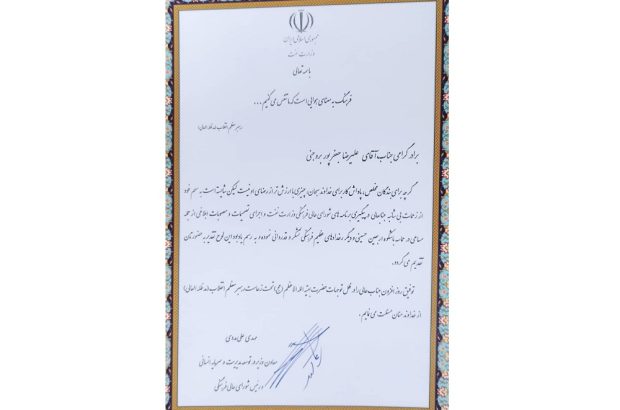 جمهوری اسلامی ایران
وزارت نفت
باسمه تعالی
فرهنگ به معنای هوایی است که ما تنفس می کنیم ...
رهبر معظم انقلاب (مد ظله العالی)
برادر گرامی جناب آقای علیرضا جعفرپور بروجنی
گرچه برای بندگان مخلص، پاداش کار برای خداوند سبحان، چیزی با ارزش تر از رضای او نیست لیکن شایسته است به سهم خود
از زحمات بی شائبه جنابعالی در پیگیری برنامه های شورای عالی فرهنگی وزارت نفت و اجرای تصمیمات و مصوبات ابلاغی از جمله
مساعی در حماسه باشکوه اربعین حسینی و دیگر رخدادهای عظیم فرهنگی تشکر و قدردانی نموده و به رسم یادبود این لوح تقدیر به حضورتان
تقدیم می گردد.
توفیق روز افزون جناب عالی را در ظل توجهات حضرت بقیة الله الاعظم (عج) تحت زعامت رهبر معظم انقلاب (مد ظله العالی)
از خداوند منان مسئلت می نمایم.
مهدی علی مددی
معاون وزیر در توسعه مدیریت و سرمایه انسانی
و رئیس شورای عالی فرهنگی